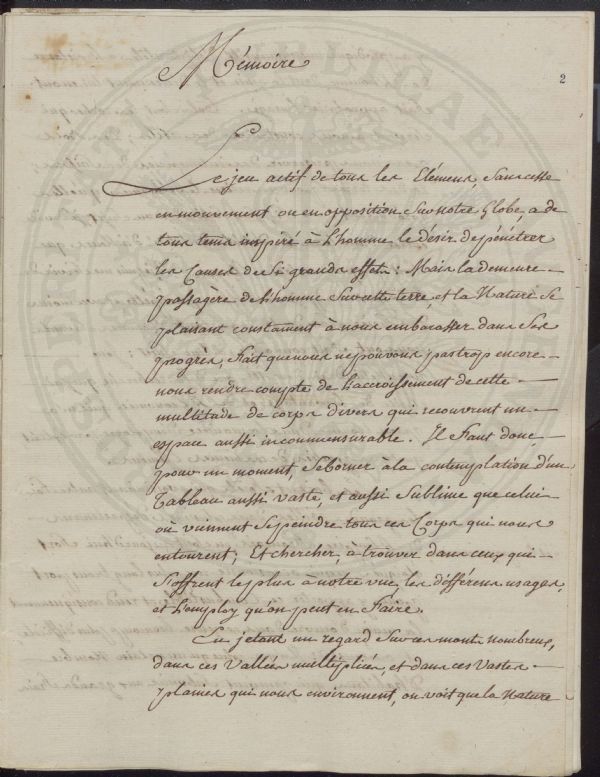 Mémoire
2
Le jeu actif de tous les Elémens, Sans cesse
en mouvement ou en opposition Sur notre Globe, a de
tous tems inspiré à L'homme le désir de pénétrer
les Causes de Si grands effets : Mais la demeure
passagère de L'homme Sur cette terre, et la Nature Se
plaisant constament à nous embarasser dans Ses
progrès, Fait que nous ne pouvons pas trop encore
nous rendre compte de L'accroissement de cette
multitude de corps divers qui recouvrent un
espace aussi incommensurable. Il Faut donc,
pour un moment, Se borner à la contemplation d'un
Tableau aussi vaste, et aussi Sublime que celui
où viennent Se peindre tous ces Corps qui nous
entourent; Et chercher, à trouver dans ceux qui
S'offrent le plus à notre vue, les différens usages,
et L'employ qu'on peut en Faire.
En jetant un regard Sur ces monts nombreux,
dans ces Vallées multipliées, et dans ces Vastes
plaines qui nous environnent, on voit que la Nature